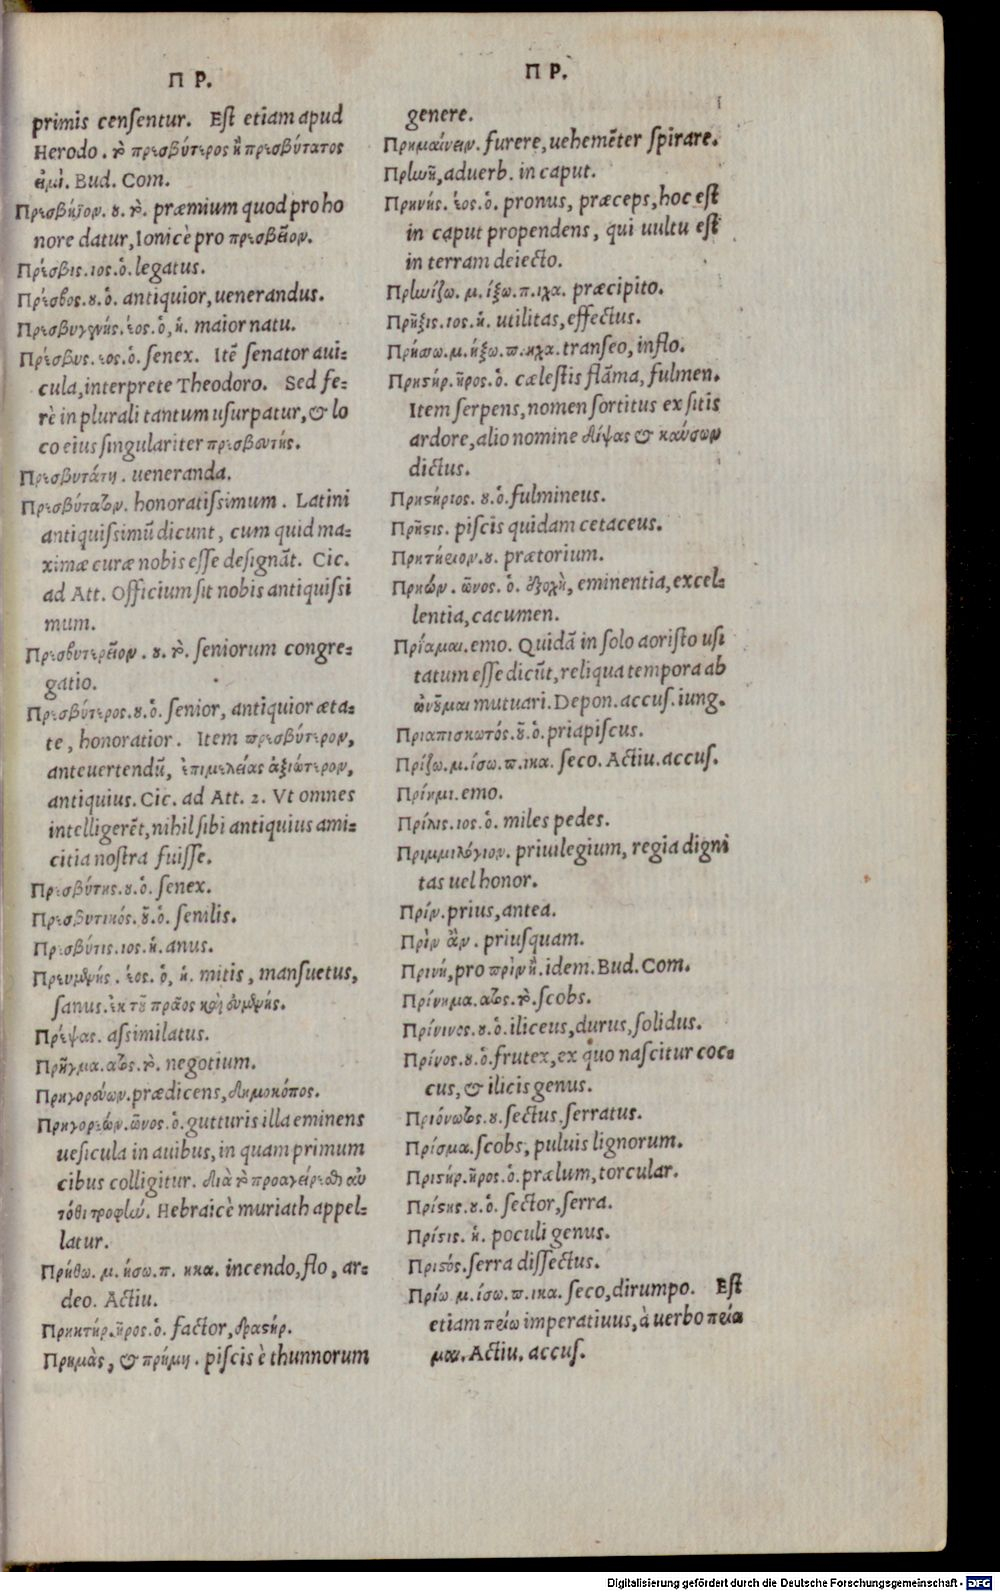 Π Ρ.
primis censentur. Est etiam apud
Herodo. τὸ πρεσβύτερος ἢ πρεσβύτατος
εἰμί. Bud. Com.
Πρεσβήϊον. ου. τὸ. præmium quod pro ho
nore datur, Ionicè pro πρεσβεῖον.
Πρέσβις. ιος. ὁ. legatus.
Πρέσβος. ου. ὁ. antiquior, uenerandus.
Πρεσβυγενής. έος. ὁ, ἡ. maior natu.
Πρέσβυς. εος. ὁ. senex. Itē senator aui-
cula, interprete Theodoro. Sed fe-
rè in plurali tantum usurpatur, & lo
co eius singulariter πρεσβευτής.
Πρεσβυτάτη. ueneranda.
Πρεσβύτατον. honoratissimum. Latini
antiquissimū dicunt, cum quid ma-
ximæ curæ nobis esse designāt. Cic.
ad Att. Officium sit nobis antiquissi
mum.
Πρεσβυτερεῖον. ου. τὸ. seniorum congre-
gatio.
Πρεσβύτερος. ου. ὁ. senior, antiquior æta-
te, honoratior. Item πρεσβύτερον,
anteuertendū, ἐπιμελείας ἀξιώτερον,
antiquius. Cic. ad Att. 2. Vt omnes
intelligerēt, nihil sibi antiquius ami-
citia nostra fuisse.
Πρεσβύτης. ου. ὁ. senex.
Πρεσβυτικός. οῦ. ὁ. senilis.
Πρεσβύτις. ιος. ἡ. anus.
Πρευμενής. έος. ὁ, ἡ. mitis, mansuetus,
sanus. ἐκ τοῦ πρᾶος καὶ εὐμενής.
Πρέψας. assimilatus.
Πρῆγμα. ατος. τὸ. negotium.
Πρηγορεύων. prædicens, δημοκόπος.
Πρηγορεών. ῶνος. ὁ. gutturis illa eminens
uesicula in auibus, in quam primum
cibus colligitur. διὰ τὸ προαγείρεσθαι αὐ
τόθι τροφήν. Hebraicè muriath appel-
latur.
Πρήθω. μ. ήσω. π. ηκα. incendo, flo, ar-
deo. Actiu.
Πρηκτήρ. ῆρος. ὁ. factor, δραστήρ.
Πρημὰς, & πρήμη. piscis è thunnorum
Π Ρ.
genere.
Πρημαίνειν. furere, uehemēter spirare.
Πρηνῆ, aduerb. in caput.
Πρηνής. έος. ὁ. pronus, præceps, hoc est
in caput propendens, qui uultu est
in terram deiecto.
Πρηνίζω. μ. ίξω. π. ιχα. præcipito.
Πρῆξις. ιος. ἡ. utilitas, effectus.
Πρήσσω. μ. ήξω. π. ηχα. transeo, inflo.
Πρηστήρ. ῆρος. ὁ. cælestis flāma, fulmen.
Item serpens, nomen sortitus ex sitis
ardore, alio nomine δίψας & καύσων
dictus.
Πρηστήριος. ου. ὁ. fulmineus.
Πρῆστις. piscis quidam cetaceus.
Πρητώριον. ου. prætorium.
Πρηών. ῶνος. ὁ. ἐξοχὴ, eminentia, excel-
lentia, cacumen.
Πρίαμαι. emo. Quidā in solo aoristo usi
tatum esse dicūt, reliqua tempora ab
ὠνοῦμαι mutuari. Depon. accus. iung.
Πριαπισκωτός. οῦ. ὁ. priapiscus.
Πρίζω. μ. ίσω. π. ικα. seco. Actiu. accus.
Πρίημι. emo.
Πρίλις. ιος. ὁ. miles pedes.
Πριμμιλόγιον. priuilegium, regia digni
tas uel honor.
Πρίν. prius, antea.
Πρὶν ἂν. priusquam.
Πρινή, pro πρὶν ἢ. idem. Bud. Com.
Πρίνημα. ατος. τὸ. scobs.
Πρίνινος. ου. ὁ. iliceus, durus, solidus.
Πρίνος. ου. ὁ. frutex, ex quo nascitur coc-
cus, & ilicis genus.
Πριόνωτος. ου. sectus, serratus.
Πρίσμα. scobs, puluis lignorum.
Πριστήρ. ῆρος. ὁ. prælum, torcular.
Πρίστης. ου. ὁ. sector, serra.
Πρίστις. ἡ. poculi genus.
Πριστός. serra dissectus.
Πρίω. μ. ίσω. π. ικα. seco, dirumpo. Est
etiam πρίω imperatiuus, à uerbo πρία
μαι. Actiu. accus.
Digitalisierung gefördert durch die Deutsche Forschungsgemeinschaft - DFG